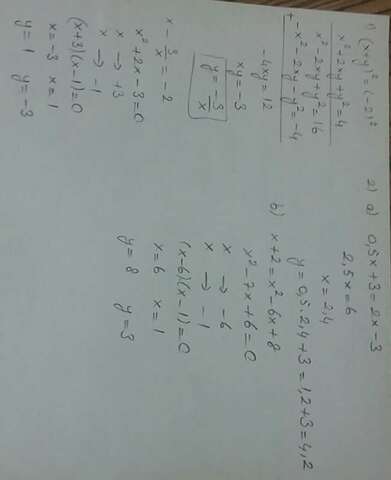 1) (x+y)² = (-2)²
x²+2xy+y²=4
x²-2xy+y²=16
+ -x²-2xy-y²=-4
-4xy=12
xy=-3
y=-3/x
x-3/x=-2
x²+2x-3=0
x → +3
x → -1
(x+3)(x-1)=0
x=-3 x=1
y=1 y=-3
2) a) 0,5x+3=2x-3
2,5x=6
x=2,4
y=0,5.2,4+3=1,2+3=4,2
b) x+2=x²-6x+8
x²-7x+6=0
x → -6
x → -1
(x-6)(x-1)=0
x=6 x=1
y=8 y=3